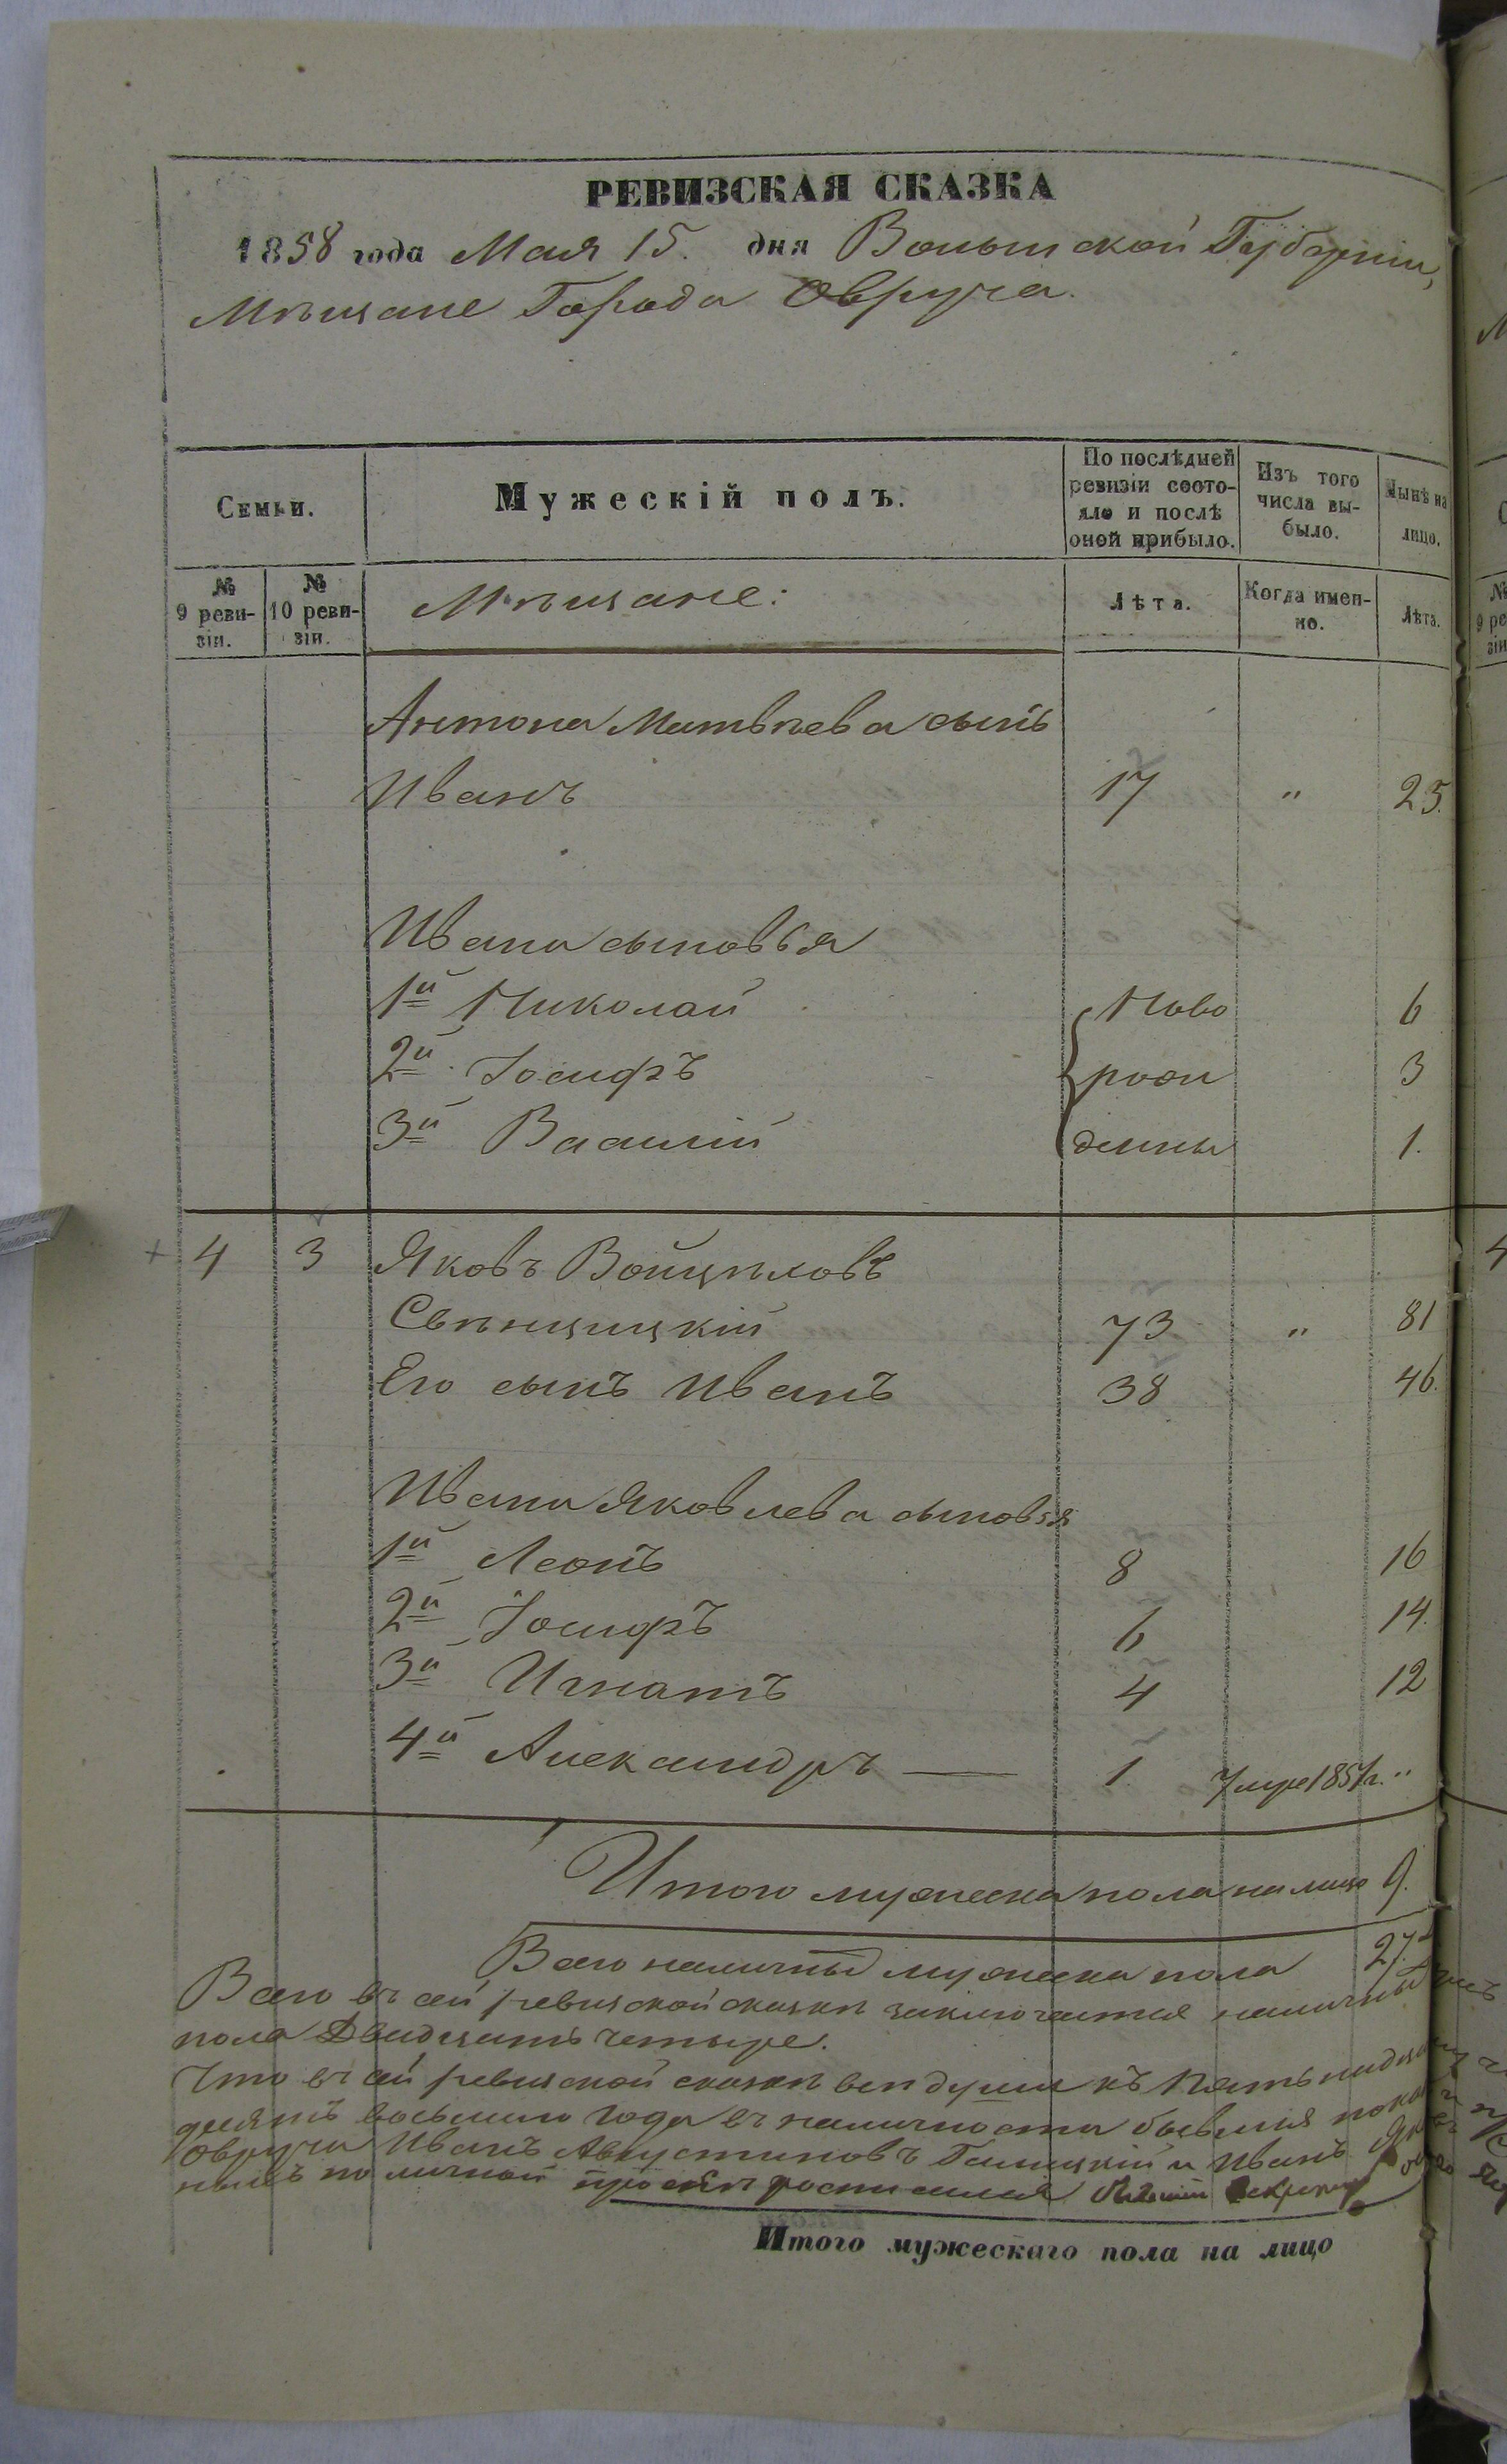 РЕВИЗСКАЯ СКАЗКА
1858 года Мая 15. дня Волынской Губерніи,
Мѣщане Города Овруча.
Семьи.
Мужескій полъ.
По послѣдней ревизіи состояло и послѣ оной прибыло.
Изъ того числа выбыло.
Нынѣ на лицо.
№ 9 ревизіи.
№ 10 ревизіи.
Мѣщане:
Лѣта.
Когда именно.
Лѣта.
Антона Матвѣева сынъ
Иванъ 17 " 25.
Ивана сыновья
1й Николай Ново 6
2й Іосифъ рож 3
3й Василій денны 1.
4 3 Яковъ Войцѣховъ
Свѣнцицкій 73 " 81
Его сынъ Иванъ 38 46.
Ивана Яковлева сыновья
1й Леонъ 8 16
2й Іосифъ 6 14.
3й Игнатъ 4 12
4й Александръ — 1. умре 185 г. "
Итого мужеска пола на лицо 9.
Всего наличныхъ мужеска пола
Всего въ сей ревизской сказкѣ заключается наличных
пола Двадцать четыре.
Что въ сей ревизской сказкѣ всѣ души къ
восьмого года въ наличности бывшія пока
Овруча Иванъ Августиновъ Галицкій и Иванъ
по личной просьбѣ росписался
Итого мужескаго пола на лицо